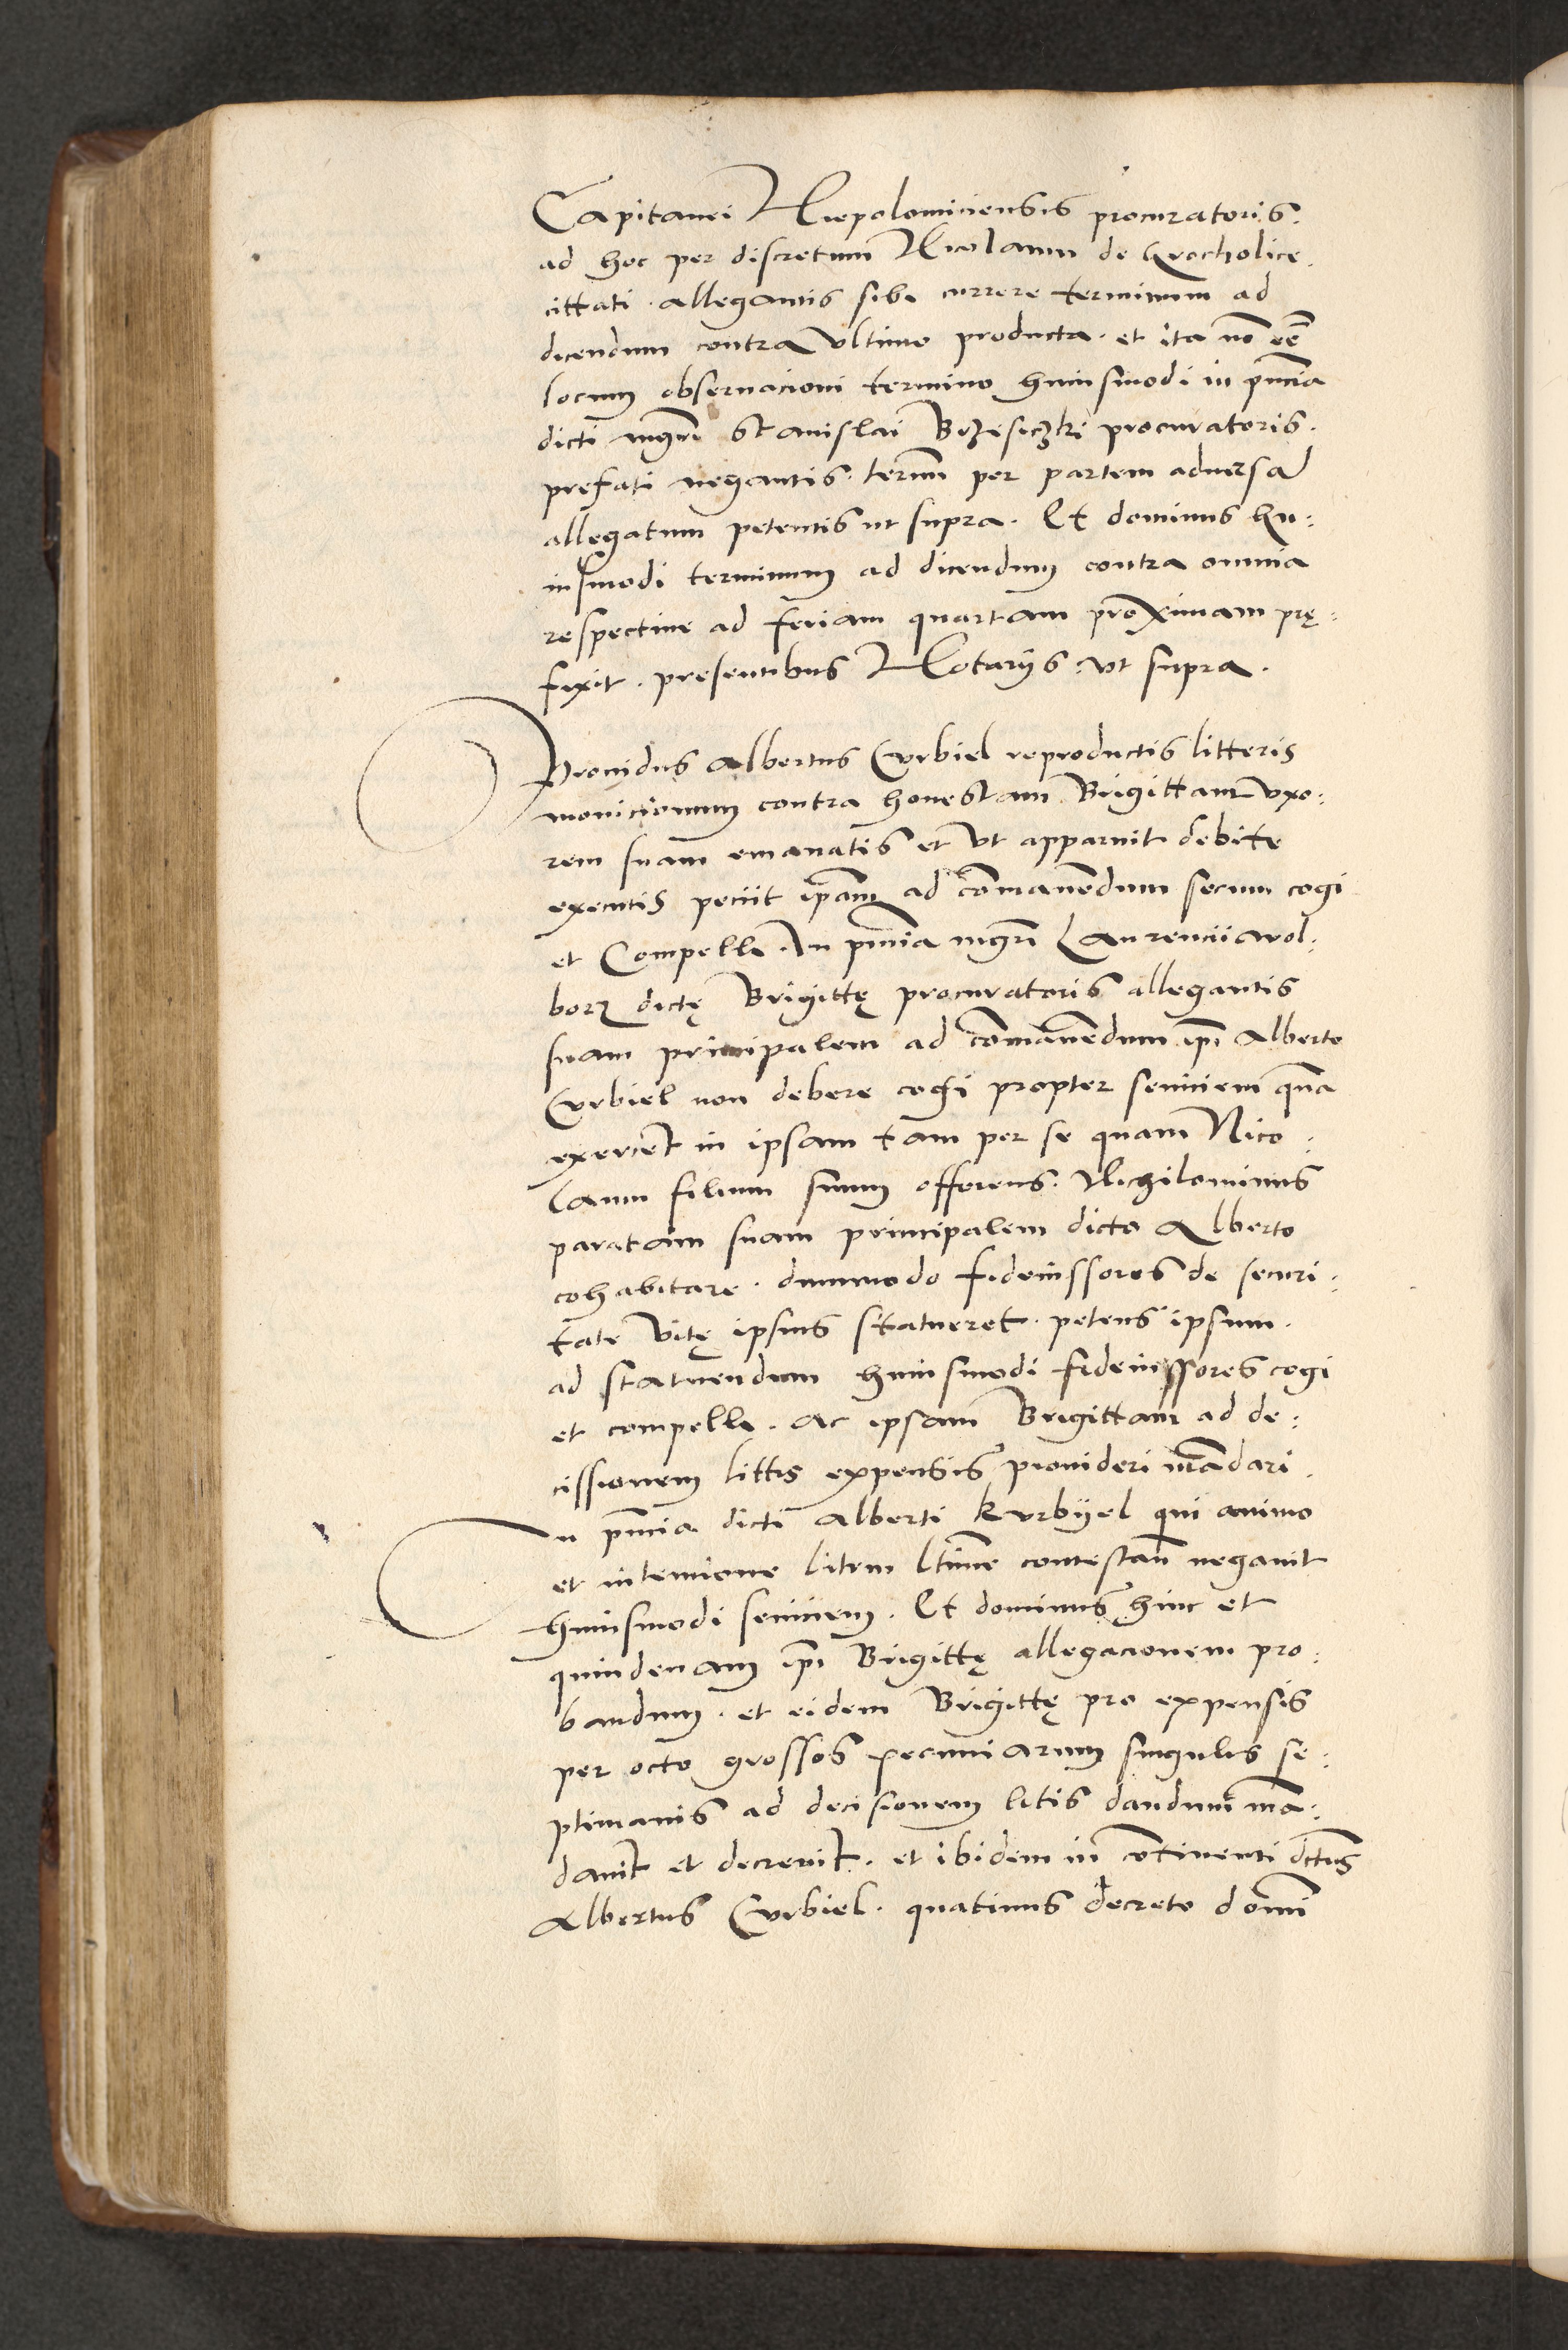 Capitanei Niepolomiciensis procuratoris.
ad hoc per discretum Nicolaum de Grocholice.
cittati. allegantis sibi currere terminum ad
dicendum contra ultimo producta. et ita no eē
locum observacioni termino huiusmodi in pncia
dicti mgri Stanislai Brzesiczki procuratoris.
prefati negantis. termi per partem adversa
allegatum petentis ut supra. Et dominus hu:
iusmodi terminum ad dicendum contra omnia
respective ad feriam quartam proximam prę:
fixit. presentibus Notarijs: ut supra.
Providus Albertus Curbiel reproductis litteris
monicionum contra honestam Brigittam uxo:
rem suam emanatis et ut apparuit debite
executis peciit ipam ad comanendum secum cogi
et Compelli. In pncia mgri Laurencii wol:
borz dictę Brigittę procuratoris allegantis
suam principalem ad comanendum ipi Alberto
Curbiel non debere cogi propter seviciem qua
exercet in ipsam tam per se quam Nico:
laum filium suum offerens. Nichilominus
paratam suam principalem dicto Alberto
cohabitare. dummodo fideiussores de securi:
tate vitę ipsius statueret. petens ipsum.
ad statuendum huiusmodi fideiussores cogi
et compelli. Ac ipsam Brigittam ad de:
cissionem littis expensis provideri madari.
In pncia dicti Alberti Kurbyel qui animo
et intencione litem ltime contestan negavit
huiusmodi seviciem. Et dominus hinc et
quindenam ipi Brigittę allegacionem pro:
bandum. et eidem Brigittę pro expensis
per octo grossos pecuniarum singulis se:
ptimanis ad decisionem litis dandum ma:
davit et decrevit. et ibidem in cotinenti dctus
Albertus Curbiel. quatinus decreto domi